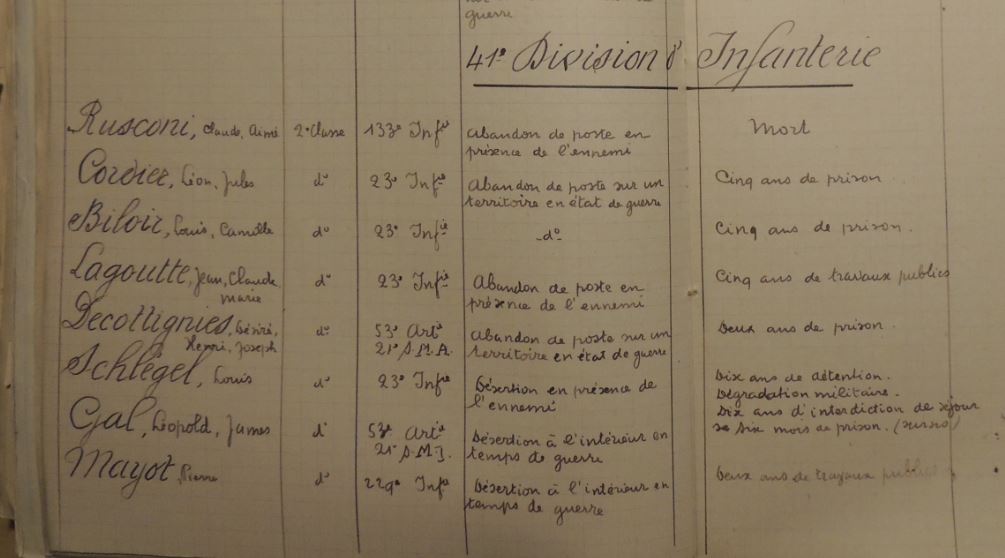 guerre
41e Division d'Infanterie
Rusconi, Claude, Aimé 2e Classe 133e Infie Abandon de poste en Mort
présence de l'ennemi
Cordier, Léon, Jules do 23e Infie Abandon de poste sur un Cinq ans de prison
territoire en état de guerre
Biloir, Louis, Camille do 23e Infie -do- Cinq ans de prison.
Lagoutte, Jean, Claude do 23e Infie Abandon de poste en Cinq ans de travaux publics
Marie présence de l'ennemi
Decottignies, Désiré, do 53e Artie Abandon de poste sur un Deux ans de prison.
Henri, Joseph 21e S.M.A. territoire en état de guerre
Schlégel, Louis do 23e Infie Désertion en présence de Dix ans de détention.
l'ennemi Dégradation militaire.
Dix ans d'interdiction de séjour
Gal, Léopold, James do 53e Artie Désertion à l'intérieur en Six mois de prison. (sursis)
21e S.M.I. temps de guerre
Mayot, Pierre do 229e Infie Désertion à l'intérieur en Deux ans de travaux publics
temps de guerre